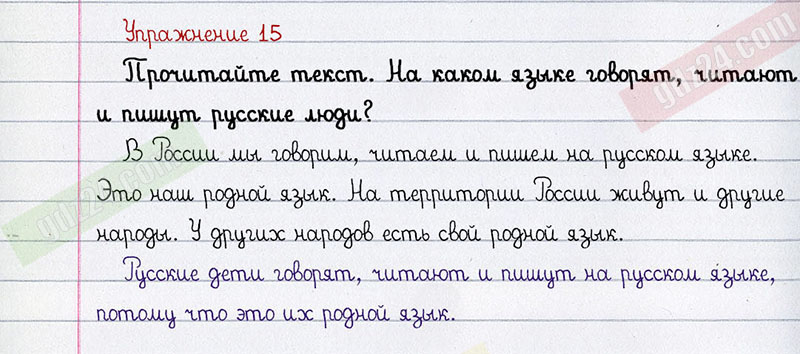 Упражнение 15
Прочитайте текст. На каком языке говорят, читают
и пишут русские люди?
В России мы говорим, читаем и пишем на русском языке.
Это наш родной язык. На территории России живут и другие
народы. У других народов есть свой родной язык.
Русские дети говорят, читают и пишут на русском языке,
потому что это их родной язык.
gdz24.com
gdz24.com